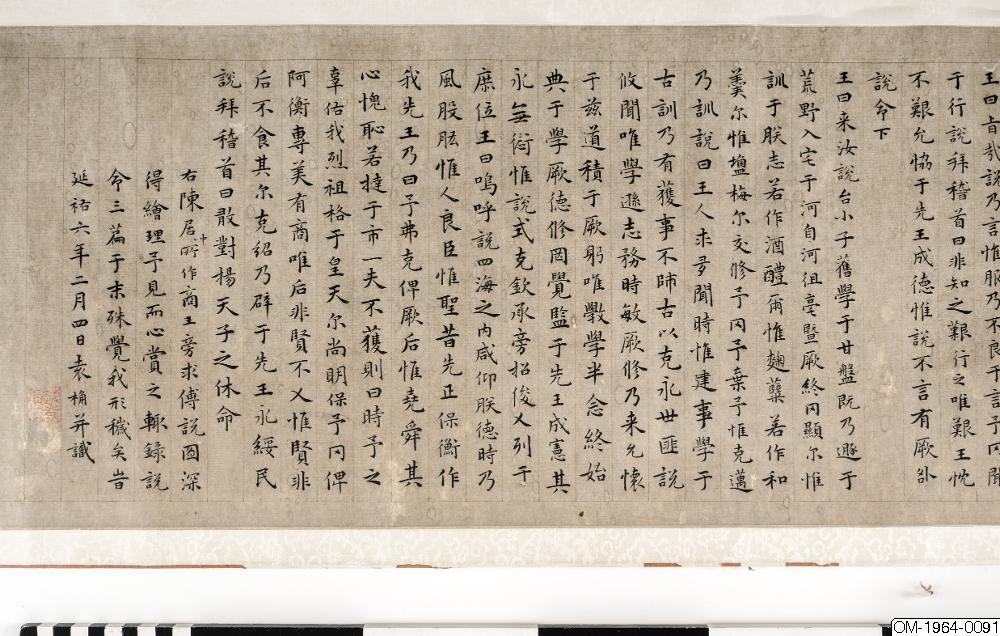 王曰旨哉說乃言惟服乃不良于言予罔聞
于行說拜稽首曰非知之艱行之唯艱王忱
不艱允協于先王成德惟說不言有厥咎
說命下
王曰来汝說台小子舊學于甘盤既乃遯于
荒野入宅于河自河徂亳暨厥終罔顯尔惟
訓于朕志若作酒醴爾惟麹糱若作和
羹尔惟塩梅尔交修予罔予棄予惟克邁
乃訓說曰王人求多聞時惟建事學于
古訓乃有獲事不師古以克永世匪說
攸聞唯學遜志務時敏厥修乃来允懷
于兹道積于厥躬唯斆學半念終始
典于學厥德修罔覺監于先王成憲其
永無愆惟說式克欽承旁招俊乂列于
庶位王曰嗚呼說四海之内咸仰朕德時乃
風股肱惟人良臣惟聖昔先正保衡作
我先王乃曰予弗克俾厥后惟堯舜其
心愧恥若撻于市一夫不獲則曰時予之
辜佑我烈祖格于皇天尔尚明保予罔俾
阿衡專美有商唯后非賢不乂惟賢非
后不食其尔克紹乃辟于先王永綏民
說拜稽首曰敢對揚天子之休命
右陳居中所作商王旁求傅說圖深
得繪理予見而心賞之輒錄說
命三篇于末殊覺我形穢矣旹
延祐六年二月四日袁桷并識
OM-1964-0091